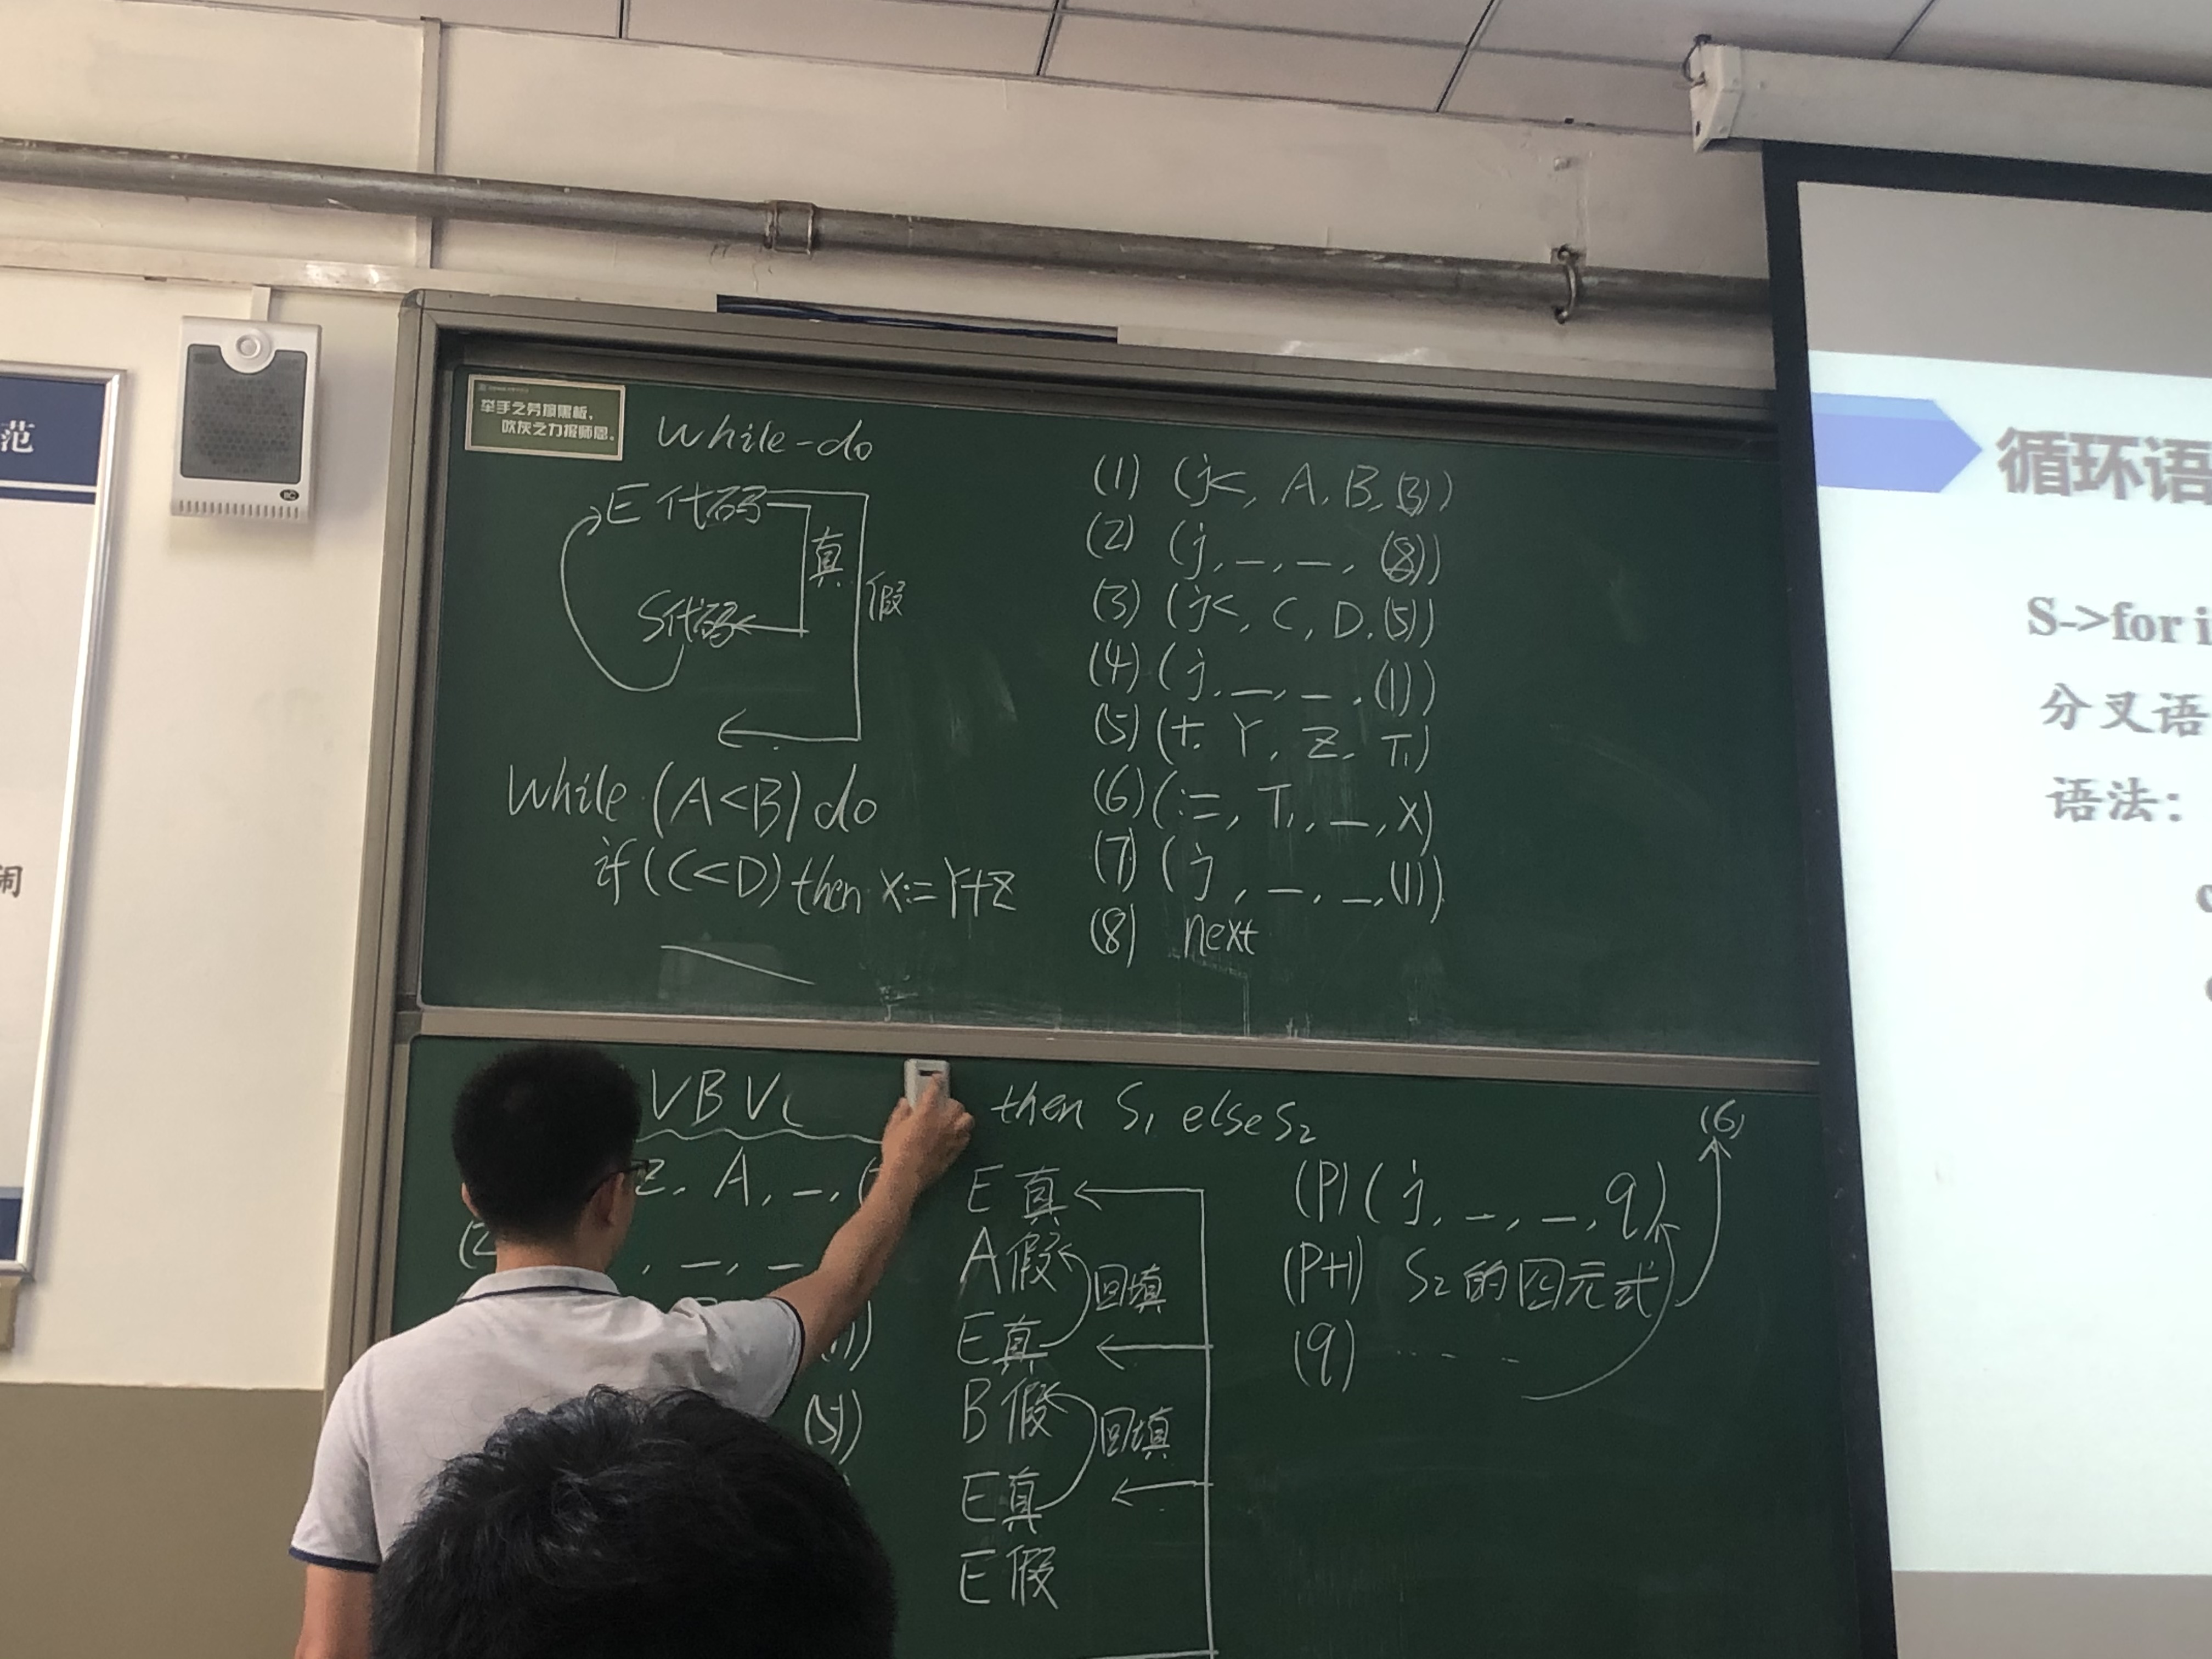 范
闹
举手之劳擦黑板，
吹灰之力报师恩。
while-do
E代码
真
假
S代码
while (A<B) do
if (C<D) then X:=Y+Z
(1) (j<, A, B, (3))
(2) (j, _, _, (8))
(3) (j<, C, D, (5))
(4) (j, _, _, (1))
(5) (+, Y, Z, T₁)
(6) (:=, T₁, _, X)
(7) (j, _, _, (1))
(8) next
∨B∨
then S₁ else S₂
A, _,
, _, _
(5)
E真
A假
回填
E真
B假
回填
E真
E假
(6)
(P) (j, _, _, q)
(P+1) S₂的四元式
(q) ....
循环语
S->for i
分叉语
语法：